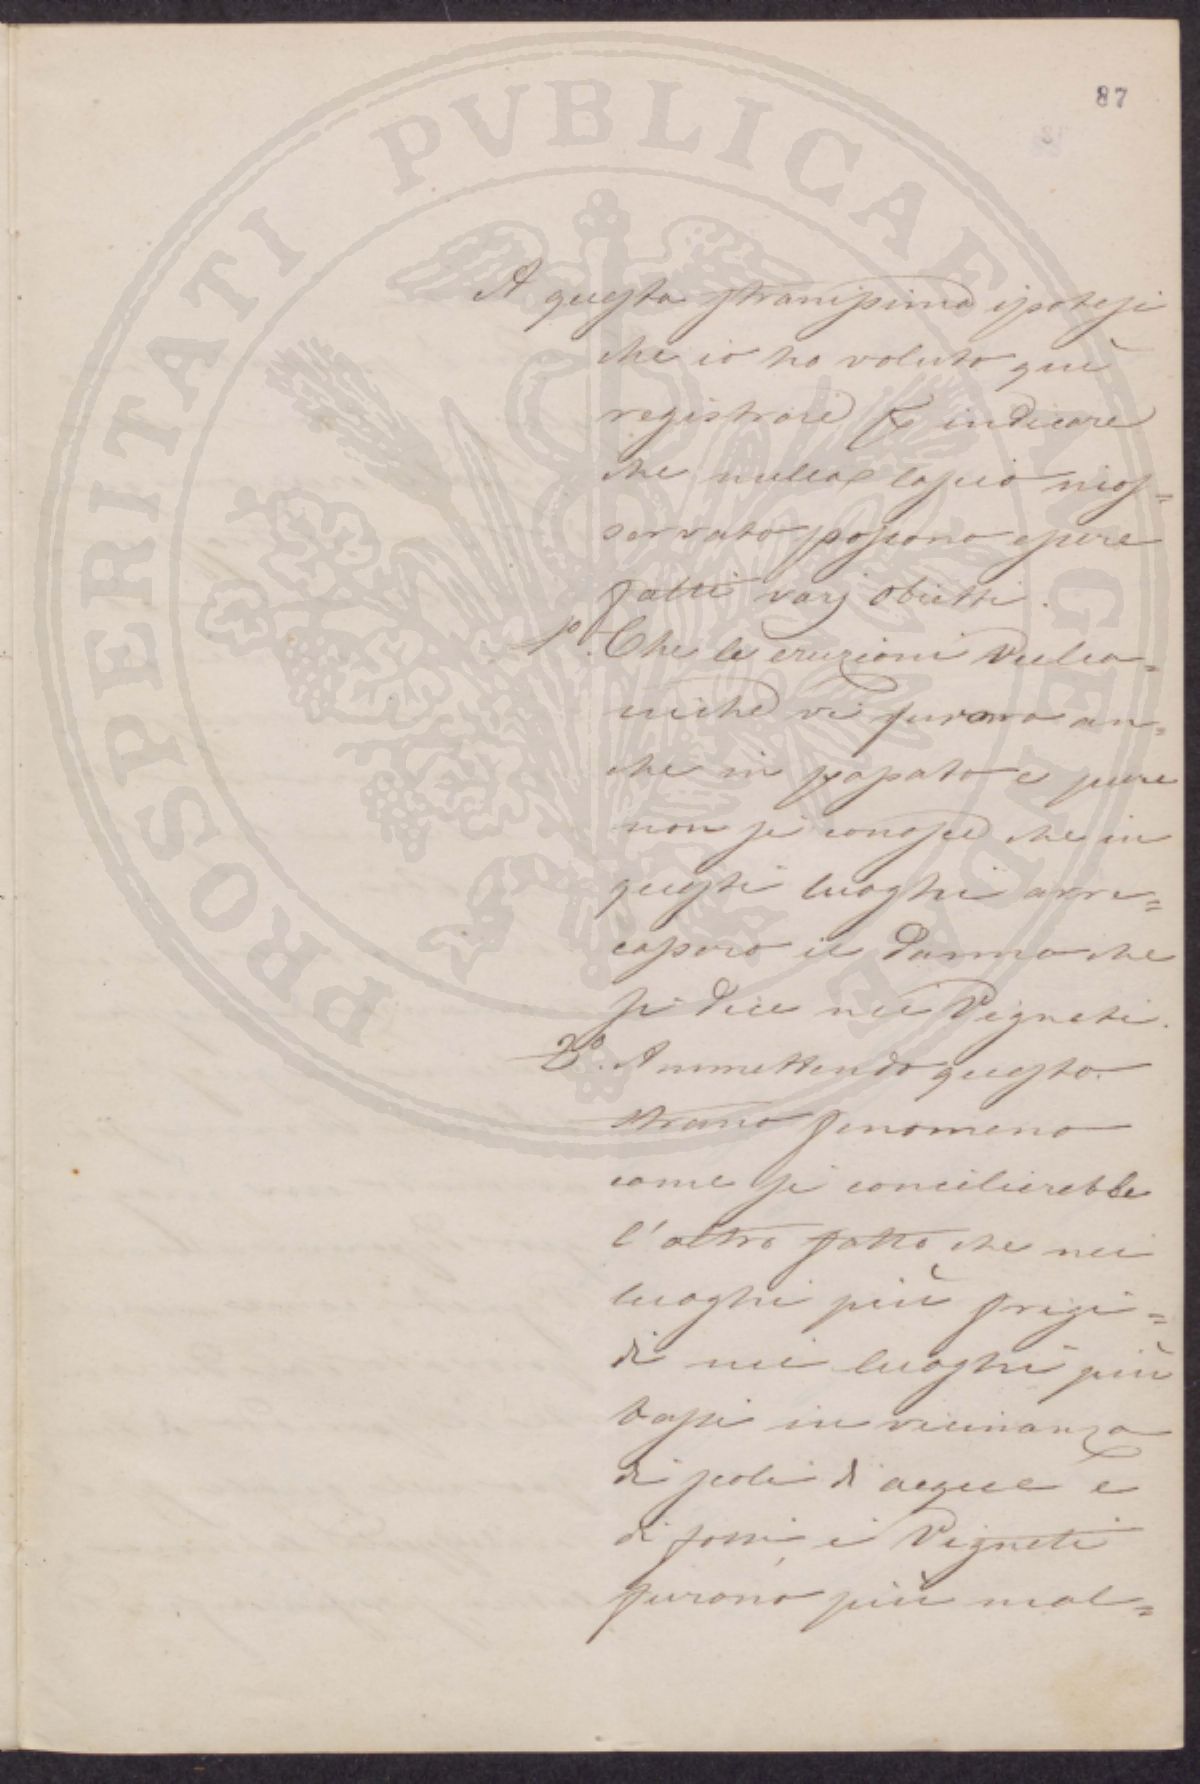 87
PROSPERITATI PVBLICAE AVGENDAE
A questa stranissima ipotesi
che io ho voluto quì
registrare per indicare
che nulla lascio inos=
servato possono essere
fatti varj obietti.
1º. Che le eruzioni Vulca=
niche vi furono an=
che in passato e pure
non si conosce che in
questi luoghi arre=
cassero il danno che
si dice nei Vigneti.
2º. Ammettendo questo
strano fenomeno
come si concilierebbe
l'altro fatto che nei
luoghi più frigi=
di nei luoghi più
bassi in vicinanza
di scoli di acque e
di fossi i Vigneti
furono più mal=